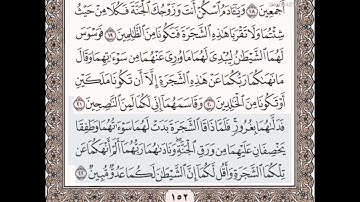 أَجْمَعِينَ ١٨ وَيَـٰٓـَٔادَمُ ٱسْكُنْ أَنتَ وَزَوْجُكَ ٱلْجَنَّةَ فَكُلَا مِنْ حَيْثُ
شِئْتُمَا وَلَا تَقْرَبَا هَـٰذِهِ ٱلشَّجَرَةَ فَتَكُونَا مِنَ ٱلظَّـٰلِمِينَ ١٩ فَوَسْوَسَ
لَهُمَا ٱلشَّيْطَـٰنُ لِيُبْدِىَ لَهُمَا مَا وُۥرِىَ عَنْهُمَا مِن سَوْءَٰتِهِمَا وَقَالَ
مَا نَهَىٰكُمَا رَبُّكُمَا عَنْ هَـٰذِهِ ٱلشَّجَرَةِ إِلَّآ أَن تَكُونَا مَلَكَيْنِ
أَوْ تَكُونَا مِنَ ٱلْخَـٰلِدِينَ ٢٠ وَقَاسَمَهُمَآ إِنِّى لَكُمَا لَمِنَ ٱلنَّـٰصِحِينَ ٢١
فَدَلَّىٰهُمَا بِغُرُورٍ فَلَمَّا ذَاقَا ٱلشَّجَرَةَ بَدَتْ لَهُمَا سَوْءَٰتُهُمَا وَطَفِقَا
يَخْصِفَانِ عَلَيْهِمَا مِن وَرَقِ ٱلْجَنَّةِ وَنَادَىٰهُمَا رَبُّهُمَآ أَلَمْ أَنْهَكُمَا عَن
تِلْكُمَا ٱلشَّجَرَةِ وَأَقُل لَّكُمَآ إِنَّ ٱلشَّيْطَـٰنَ لَكُمَا عَدُوٌّ مُّبِينٌ ٢٢
١٥٢